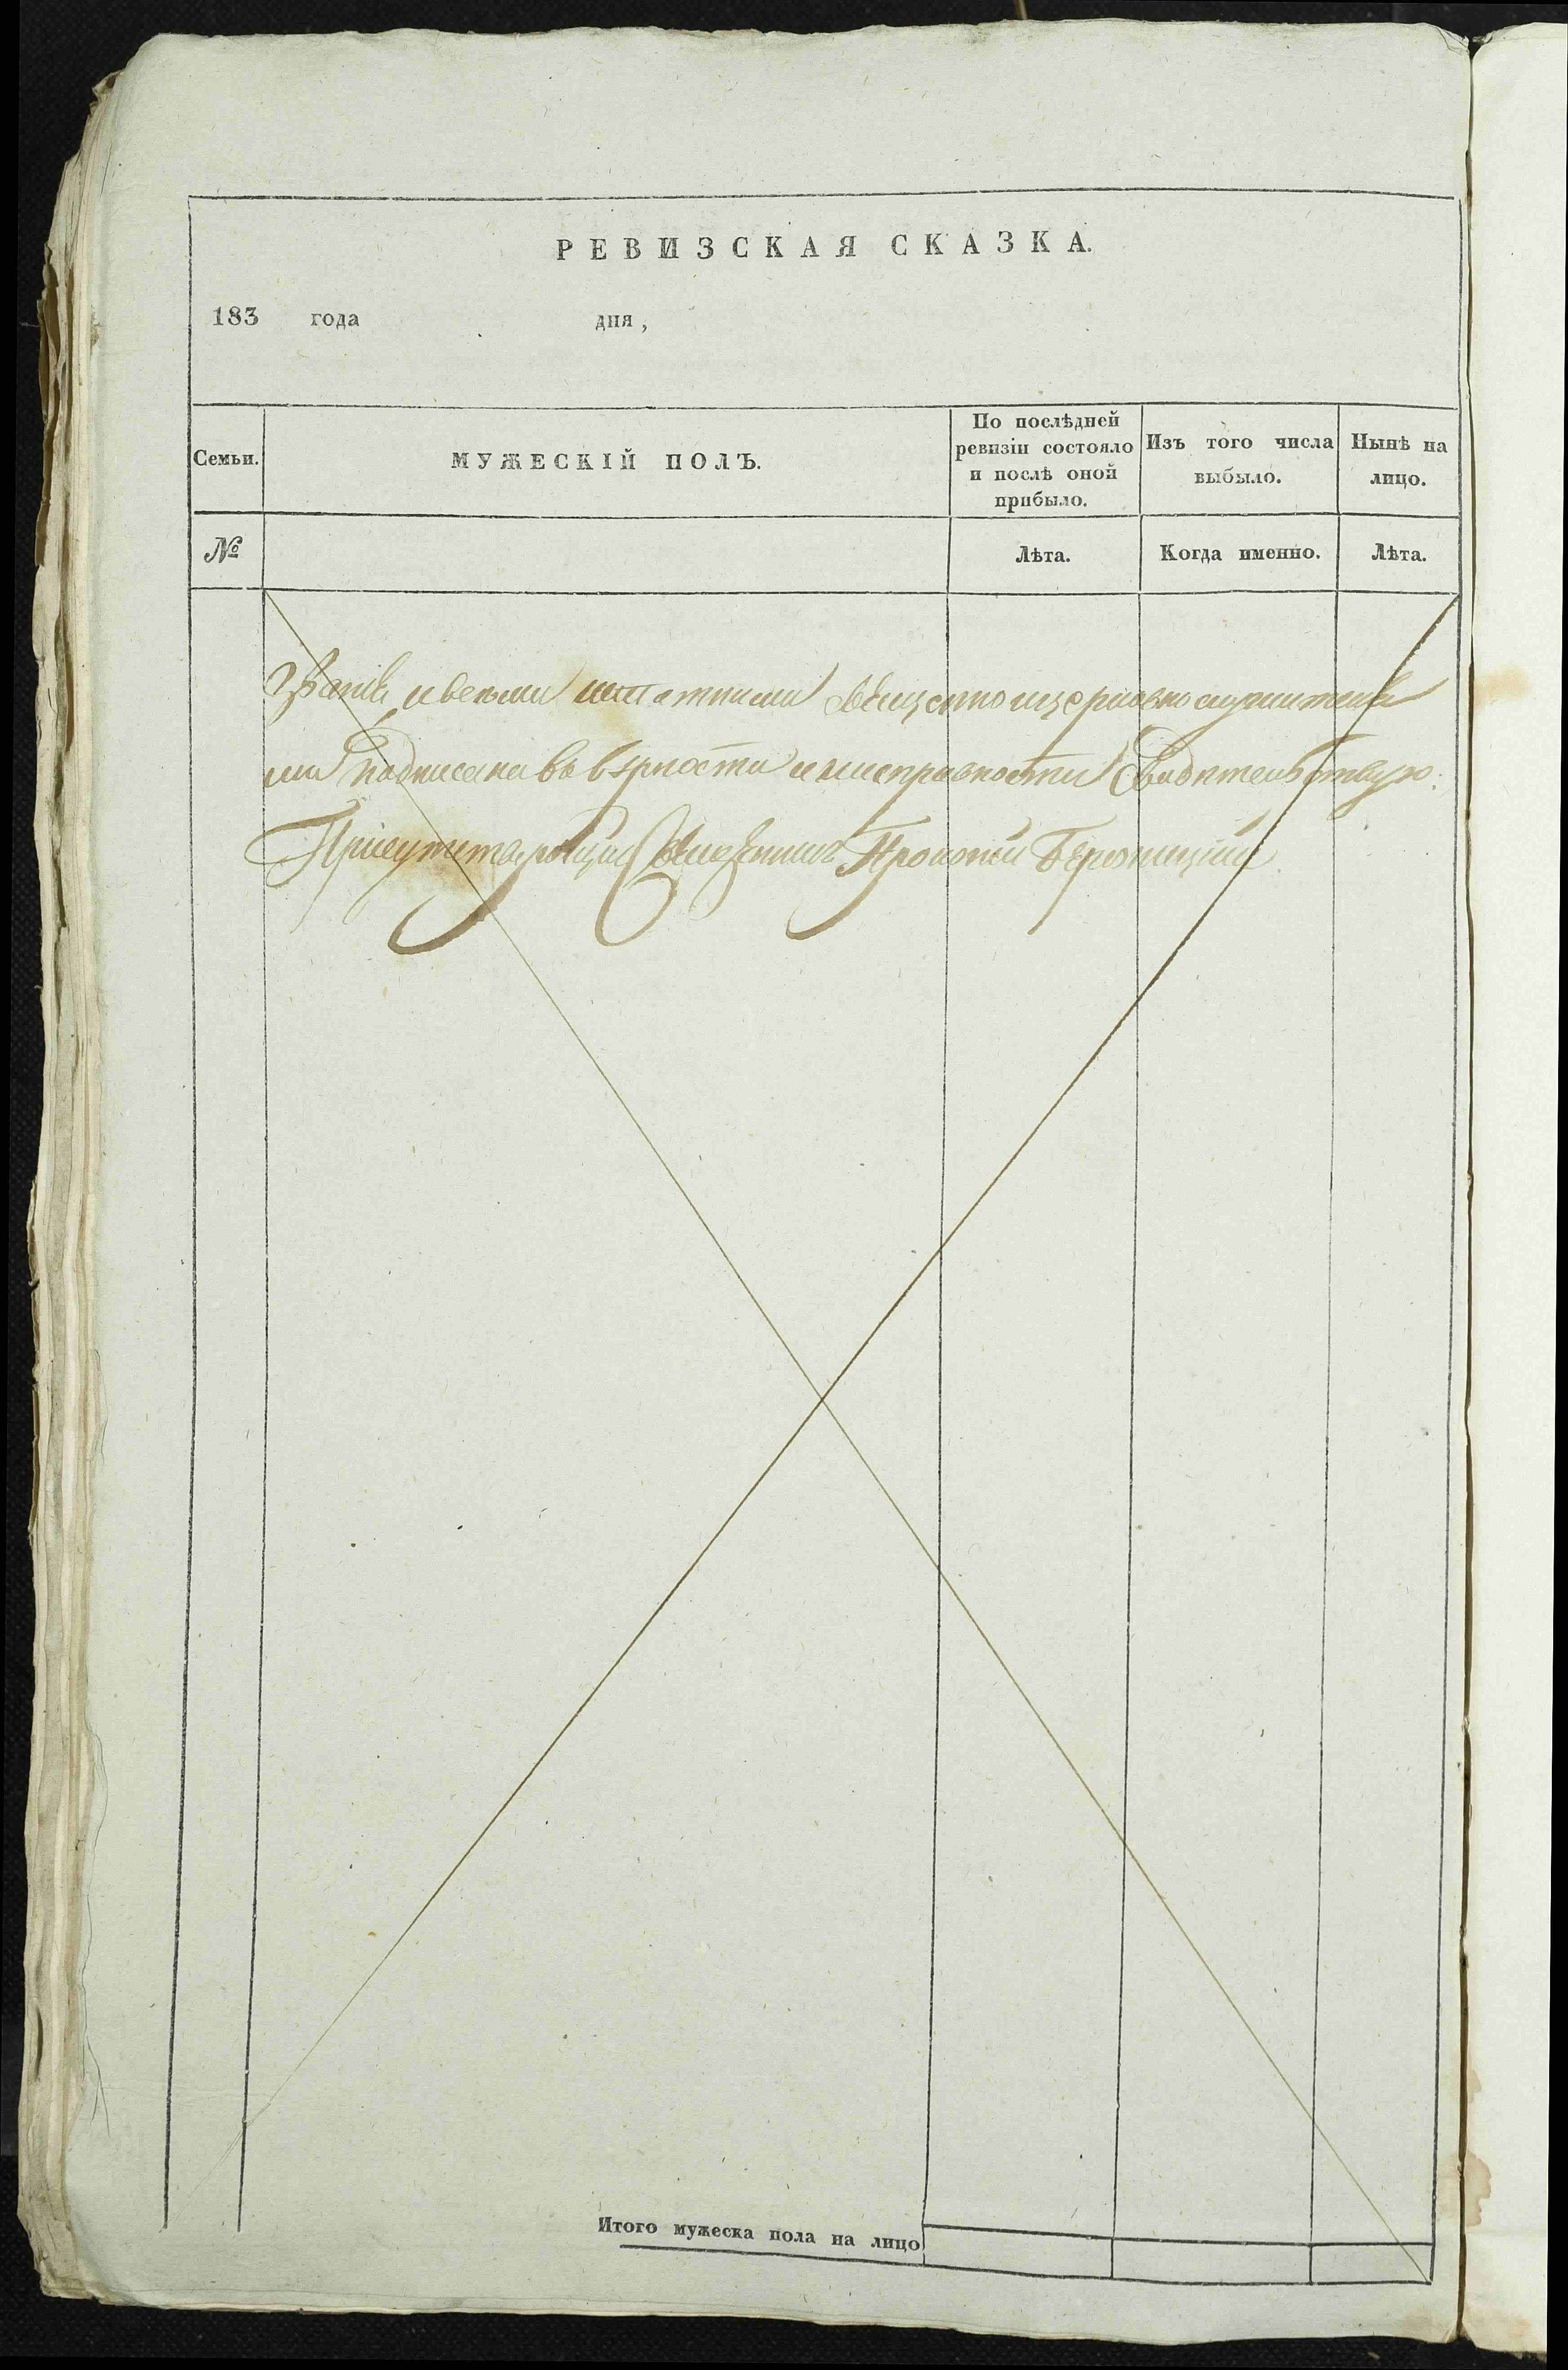 РЕВИЗСКАЯ СКАЗКА.
183 года дня,
Семьи.
МУЖЕСКІЙ ПОЛЪ.
По послѣдней
ревизіи состояло
и послѣ оной
прибыло.
Изъ того числа
выбыло.
Нынѣ на
лицо.
№
Лѣта.
Когда именно.
Лѣта.
званія и всѣми штатными священно и церковнослужителя
ми подписана въ вѣрности и исправности Свидѣтельствую:
Присутствующій Священникъ Прокопій
Итого мужеска пола на лицо